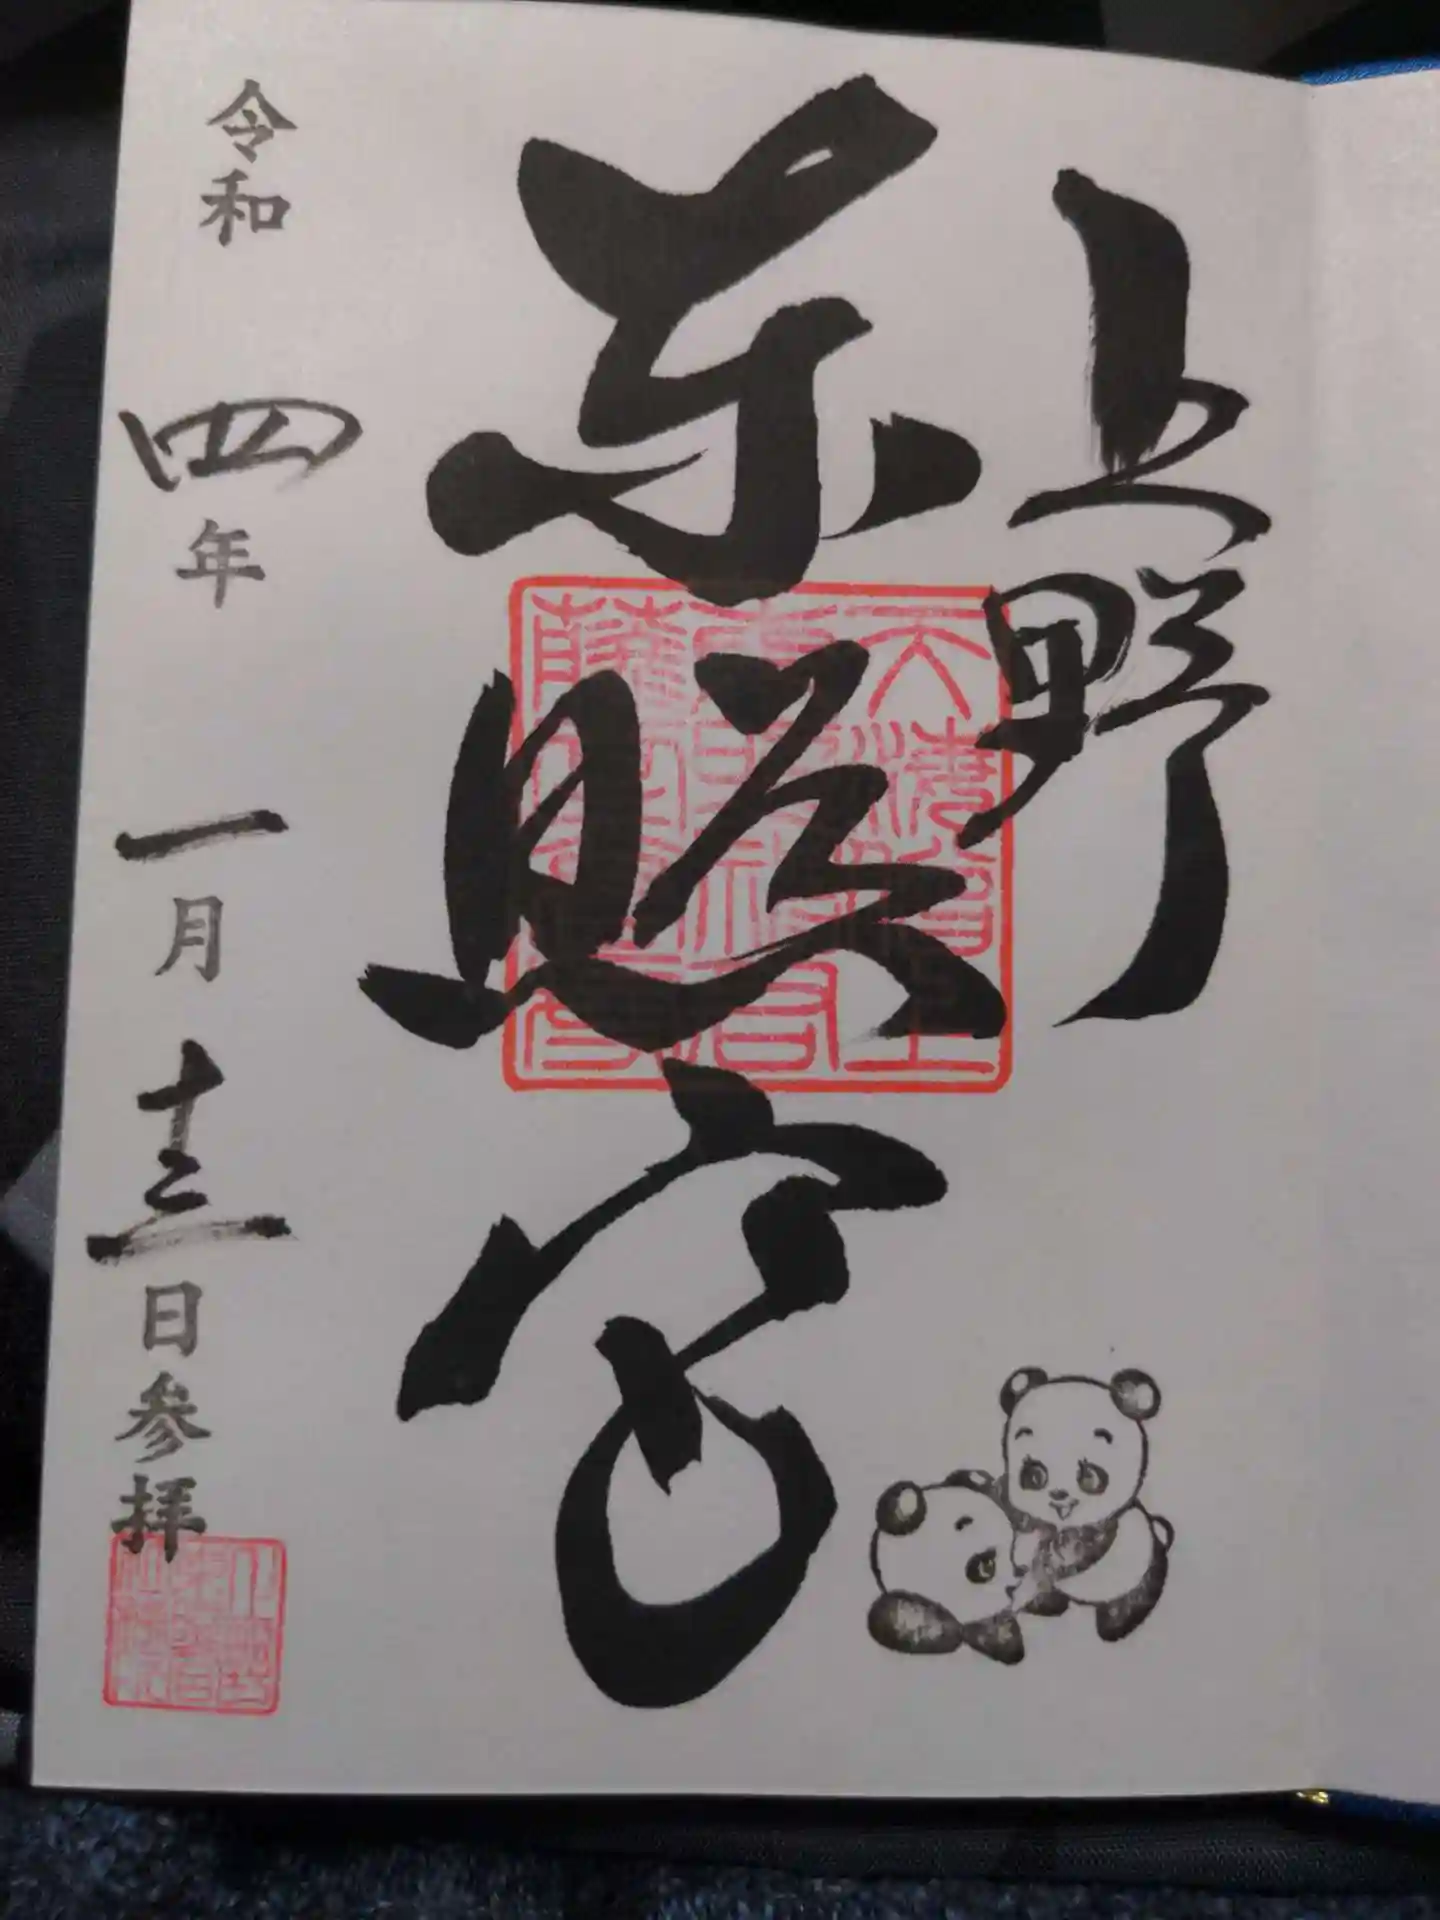 上野
東照宮
令和四年一月十三日参拝